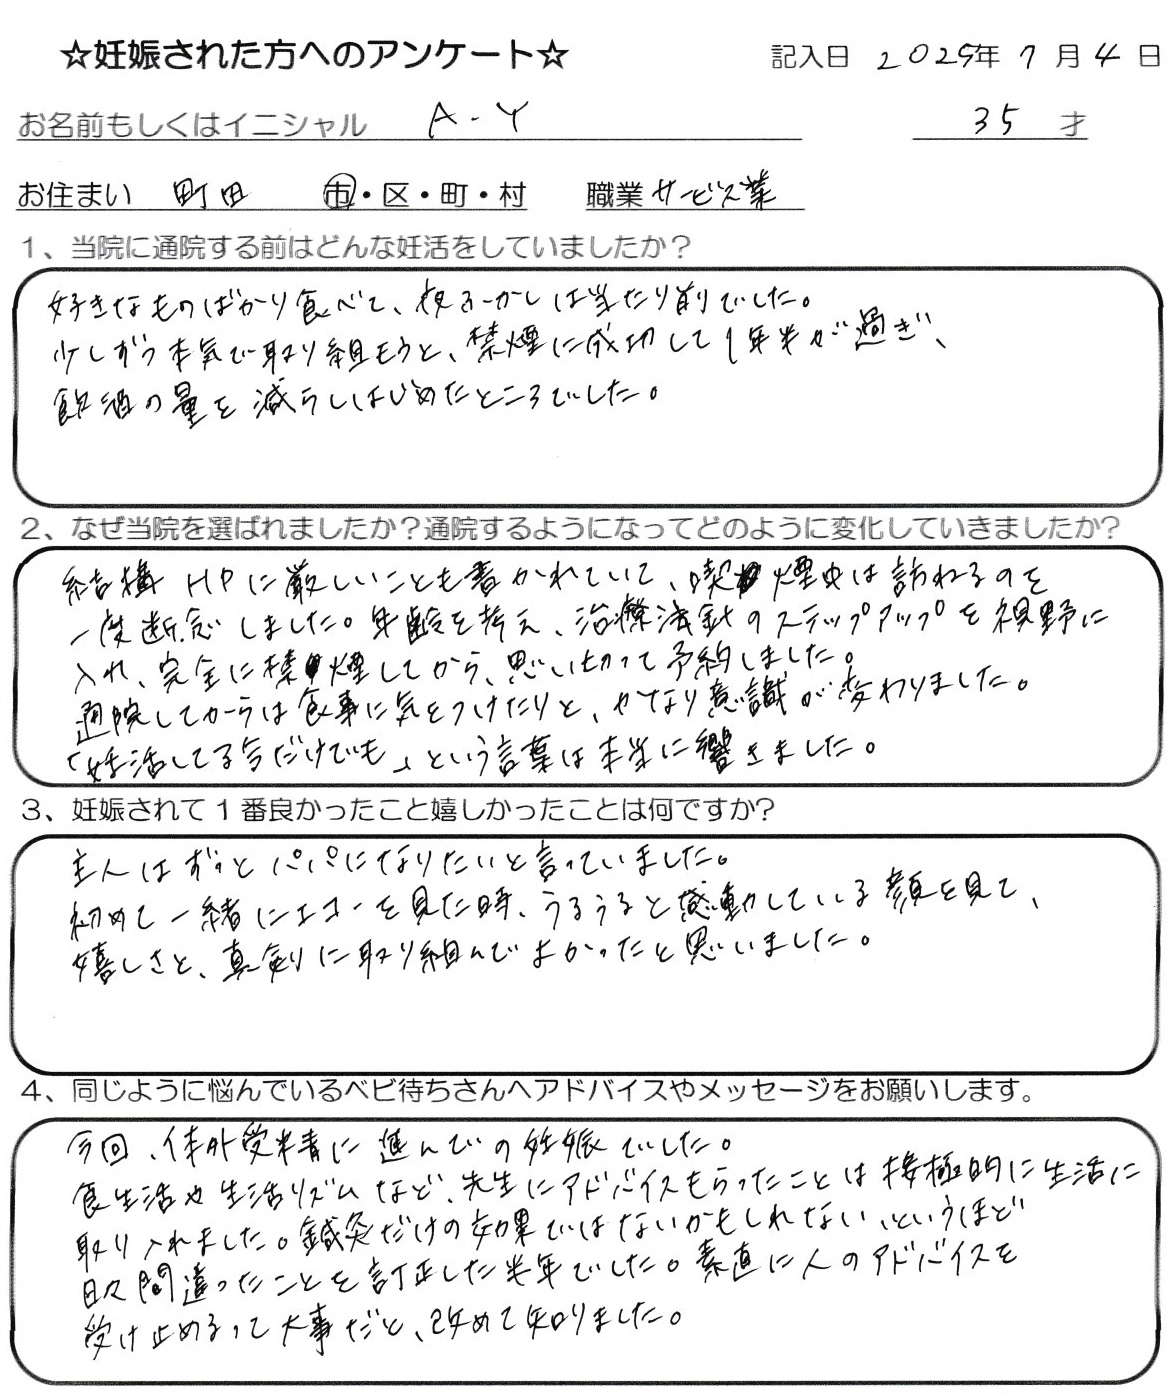 ☆妊娠された方へのアンケート☆ 記入日 2025年 7月 4日
お名前もしくはイニシャル A-Y 35才
お住まい 町田 市・区・町・村 職業 サービス業
1、当院に通院する前はどんな妊活をしていましたか？
好きなものばかり食べて、夜ふかしは当たり前でした。
少しずつ本気で取り組もうと、禁煙に成功して1年半が過ぎ、
飲酒の量を減らしはじめたところでした。
2、なぜ当院を選ばれましたか？通院するようになってどのように変化していきましたか?
結構HPに厳しいことも書かれていて、喫煙中は訪ねるのを
一度断念しました。年齢を考え、治療法針のステップアップを視野に
入れ、完全に禁煙してから、思い切って予約しました。
通院してからは食事に気をつけたりと、かなり意識が変わりました。
「妊活してる今だけでも」という言葉は本当に響きました。
3、妊娠されて1番良かったこと嬉しかったことは何ですか?
主人はずっとパパになりたいと言っていました。
初めて一緒にエコーを見た時、うるうると感動している顔を見て、
嬉しさと、真剣に取り組んでよかったと思いました。
4、同じように悩んでいるベビ待ちさんへアドバイスやメッセージをお願いします。
今回、体外受精に進んでの妊娠でした。
食生活や生活リズムなど、先生にアドバイスもらったことは積極的に生活に
取り入れました。鍼灸だけの効果ではないかもしれない、というほど
日々間違ったことを訂正した半年でした。素直に人のアドバイスを
受け止めるって大事だと、改めて知りました。